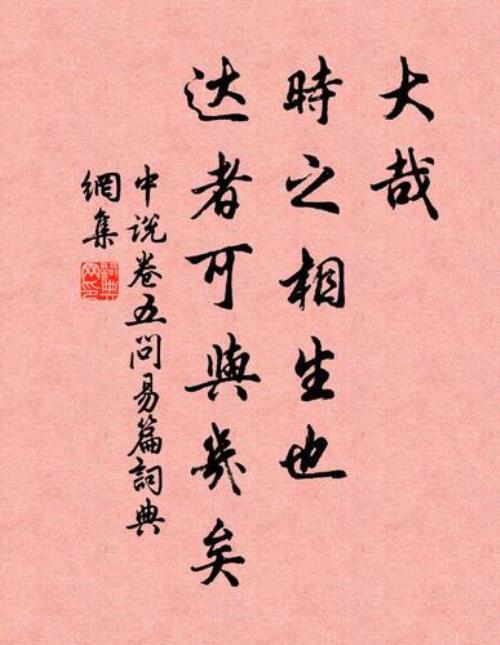 大哉
時之相生也
达者可與幾矣
中说卷五問易篇詞典
網集
詞典網印